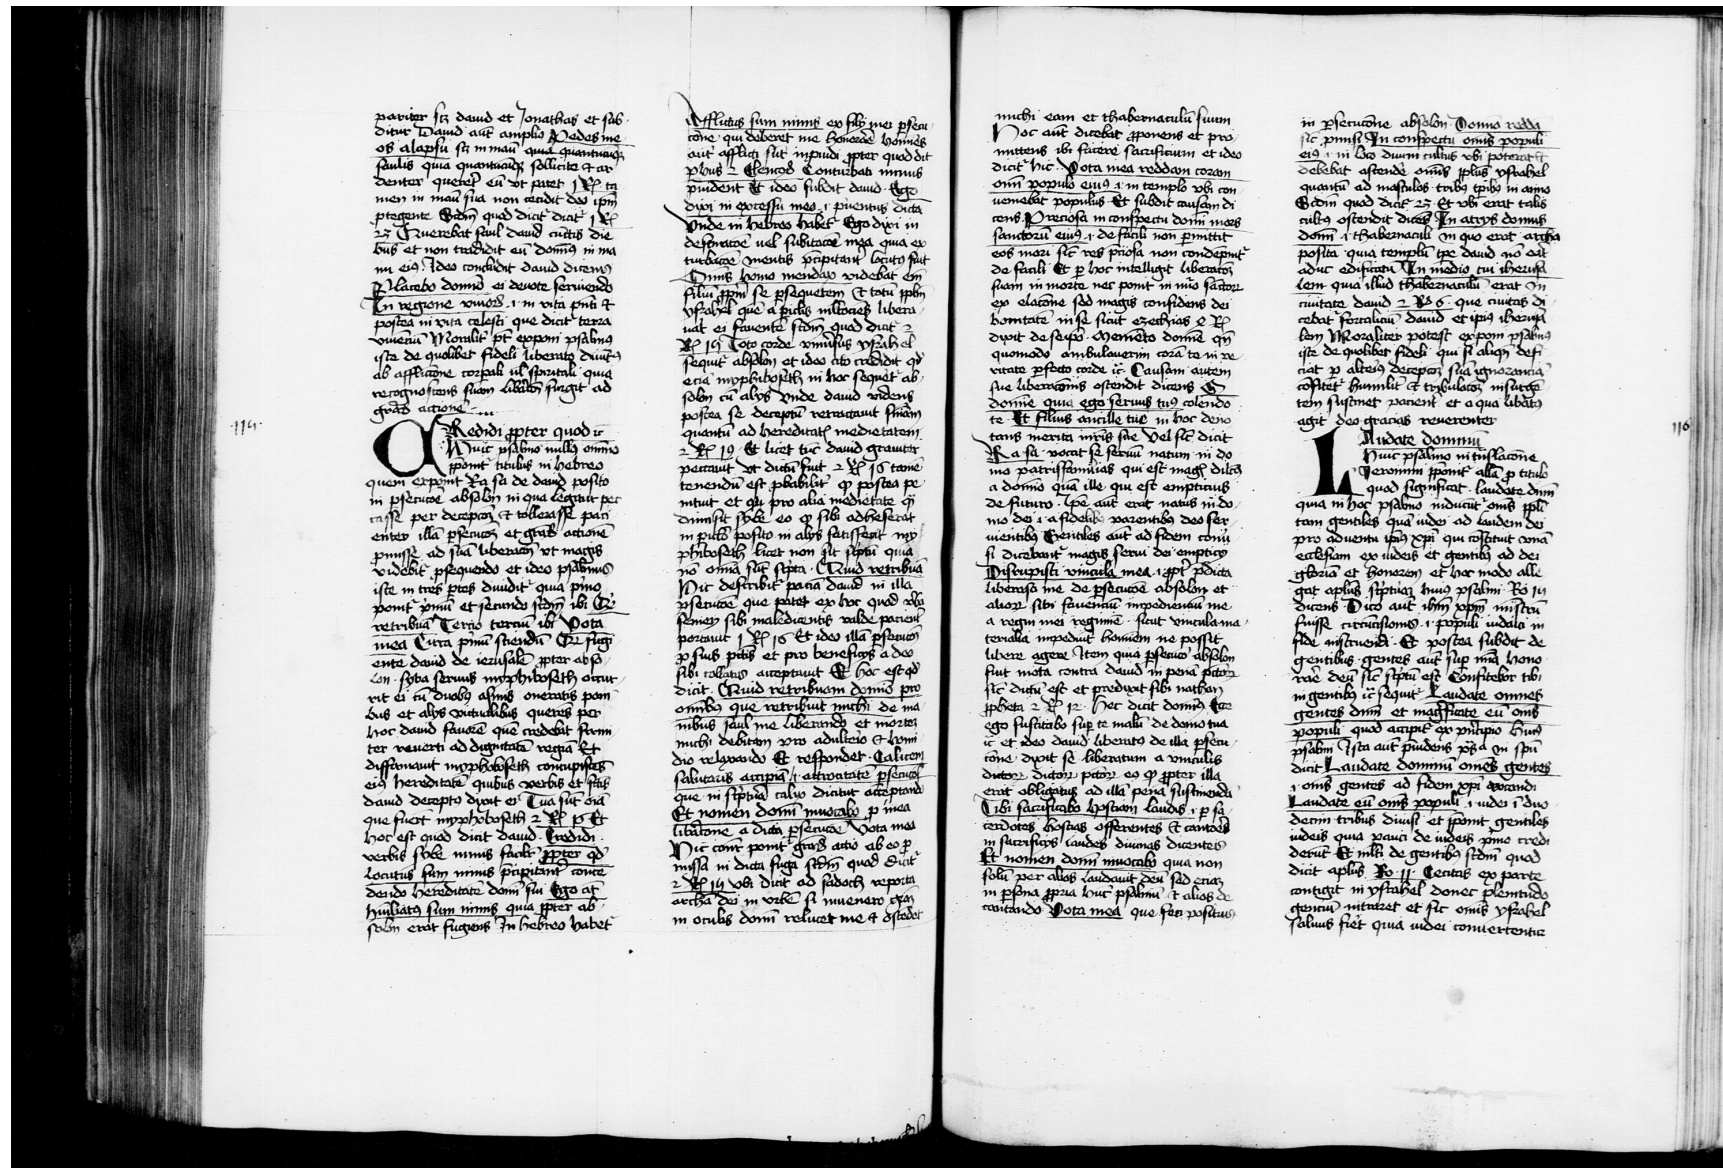 pariter scz dauid et Jonathas et sub
ditur Dauid aut amplio Pedes me
os a lapsu scz in manu quia quantucuqz
saulis quia quantucuqz sollicite et ar
denter quereret eu vt patet 1 Re ta
men in manu sua non cecidit deo ipm
ptegente Scdm quod dicit dicitur 1 Re
23 Querebat saul dauid cuctis die
bus et non tradidit eu domins in ma
nu eius Ideo concludit dauid dicens
Placebo domino ei deuote seruiendo
In regione viuorum .i. in vita pnti et
postea in vita celesti que dicit terra
viuenciu Moralit pt exponi psalmus
iste de quolibet fideli liberato diuinitus
ab afflictone corpali vel spiritali quia
recognoscens suam liberaton surgit ad
graru actione
.114.
Credidi ppter quod ic
Huic psalmo nullus omnino
pponit titulus in hebreo
quem exponit Ra sa de dauid posito
in psecutone absolon in qua legitur pec
casse per deceptoz et tollerasse paci
enter illa psecutoz et graru actione
pmisse ad sua liberaton vt magis
videbit psequendo et ideo psalmus
iste in tres ptes diuidit quia pmo
ponit pmu et secundo scdm ibi Qd
retribua Tercio terciu ibi Vota
mea Circa pmu sciendu Qd fugi
ente dauid de ierusale ppter abso
lon . syba seruus myphiboseth occur
rit ei cu duobus asinis oneratis pani
bus et alijs victualibus querens per
hoc dauid fauore que credebat firmi
ter reuerti ad dignitate regia Et
diffamauit myphiboseth concupiscens
eius hereditate quibus verbis et fictis
dauid deceptus dixit ei Tua sut oia
que fuert myphiboseth 2 Re p Et
hoc est quod dicit dauid . Credidi .
verbis sybe nimis facilit ppter qd
locutus sum nimis pcipitanter conce
dendo hereditate domi sui Ego at
humiliatus sum nimis quia ppter ab
solon erat fugiens In hebreo habet
Afflictus sum nimis ex filij mei psecu
tone . qui deberet me honorare homines
aut afflicti sut inpuidi ppter quod dit
phus 2 Elencoz Conturbati minus
puident Et ideo subdit dauid . Ego
dixi in excessu meo .i. puentus dicta
Vnde in hebreo habet Ego dixi in
desperacoe uel subitacoe mea quia ex
turbacoe mentis pcipitant locutus fuit
Omnis homo mendax videbat em
filiu ppriu se psequentem et totu pplm
ysrahel que a piclis multociens libera
uat ei fauente scdm quod dicit 2
Re 15 Toto corde vniuersus ysrahel
sequit absolon et ideo cito credidit qd
ecia myphiboseth in hoc sequeret ab
solon cu alijs Vnde dauid videns
postea se deceptu retractauit sniam
quantu ad hereditatis medietatem
2 Re 19 . Et licet tuc dauid grauiter
peccauit vt dictu fuit 2 Re 16 tame
tenendu est pbabilit qd postea pe
nituit et qd pro alia medietate qd
dimisit sybe eo qd sibi adheserat
in piclo posito in alijs satisfecit my
phiboseth licet non sit scptu quia
no omia sut scpta . Quid retribua
Hic describit pacia dauid in illa
psecutoe que patet ex hoc quod vba
semey sibi maledicentis valde pacient
portauit 1 Re 16 Et ideo illa psecutoz
p suis pctis et pro beneficijs a deo
sibi collatis acceptauit Et hoc est qd
dicit . Quid retribuam domino pro
omibus que retribuit michi de ma
nibus saul me liberando et mortez
michi debitam pro adulterio et homi
dio relaxando Et respondet . Calicem
salutaris accipia .i. atrocitate psecutois
que in scptura calix dicitur acceptando
Et nomen domi inuocabo p mea
libatone a dicta psecutoe Vota mea
Hic contr ponit graru actio ab eo p
missa in dicta fuga scdm quod dicit
2 Re 15 vbi dicit ad sadoch reporta
archa dei in vrbe si inuenero gram
in oculis domi reducet me et ostendet
michi eam et thabernaculu suum
Hoc aut dicebat pponens et pro
mittens ibi facere sacrificium et ideo
dicit hic . Vota mea reddam coram
omi populo eius .i. in templo vbi con
ueniebat populus Et subdit causam di
cens Preciosa in conspectu domi mors
sanctoru eius .i. de facili non pmittit
eos mori sicut res pciosa non condempnit
de facili Et p hoc intelligit liberatoz
suam in morte nec ponit in nuo sanctoru
ex elatone sed magis confidens dei
bonitate in se sicut ezechias 4 Re
dixit de seipo . Memeto domine qn
quomodo ambulauerim cora te in ve
ritate pfecto corde ic Causam autem
sue liberatonis ostendit dicens O
domine quia ego seruus tuus colendo
te Et filius ancille tue in hoc deno
tans merita matris sue Vel sic dicit
Ra sa . vocat se seruu natum in do
mo patrisfamilias qui est magis dilcus
a domino qua ille qui est empticius
de futuro . Ipe aut erat natus in do
mo dei .i. a fidelibus parentibus deo ser
uientibus Gentiles aut ad fidem conu
si dicebant magis serui dei empticij
Disrupisti vincula mea .i. ppt pdicta
liberasti me de psecutoe absolon et
alioru sibi fauenciu impedienciu me
a regni mei regimine . sicut vincula ma
terialia impediunt homine ne possit
libere agere Item quia psecuco absolon
fuit mota contra dauid in pena pctoru
sic dictu est et predixit sibi nathan
ppheta 2 Re 12 . Hec dicit dominus Ecce
ego suscitabo sup te malu de domo tua
ic et ideo dauid liberatus de illa psecu
tone dixit se liberatum a vinculis
dictoru dictoru pctoru eo qd ppter illa
erat obligatus ad illa pena sustinenda
Tibi sacrificabo hostiam laudis .i. p sa
cerdotes hostias offerentes et cantores
in sacrificijs laudes diuinas dicentes
Et nomen domi inuocabo quia non
solu per alios laudauit deu sed eciaz
in psona ppria hunc psalmu et alios de
cantando Vota mea que feci positus
in psecutone absolon Domino redda
sic pmisi In conspectu omis populi
eius .i. in loco diuini cultus vbi poterat et
debebat ascende omis pplus ysrahel
quantu ad masculos tribus tpibus in anno
Scdm quod dicit 23 Et vbi erat talis
cultus ostendit dicens In atrijs domus
domi .i. thabernaculi in quo erat archa
posita quia templu tpe dauid no erat
aduc edificatu In medio tui iherusa
lem quia illud thabernaculu erat in
ciuitate dauid 2 Re 6 . que ciuitas di
cebat fortaliciu dauid et ipius iherusa
lem Moraliter potest exponi psalmus
iste de quolibet fideli qui si aliqn defi
ciat p alterius deceptoz sua ignorancia
cofitet humilit et tribulatoz insurge
tem sustinet pacient et a qua libatus
agit deo gracias reuerenter
116
Laudate dominu
Huic psalmo in tnslacone
Jeronimi pponit alla p titulo
quod significat . laudate dnm
quia in hoc psalmo inducunt omis ppli
tam gentiles qua iudei ad laudem dei
pro aduentu ipius xpi qui costituit vna
ecclesiam ex iudeis et gentibus ad dei
gloriam et honorem et hoc modo alle
gat aplus scpturaz huius psalmi . Ro 15
dicens . Dico aut ihm xpm ministru
fuisse circucisionis .i. populi iudaici in
fide instruendi . Et postea subdit de
gentibus . gentes aut sup mia hono
rare deu sic scptu est Confitebor tibi
in gentibus ic sequit Laudate omnes
gentes dnm et magnificate eu omis
populi quod accipit ex pncipio huius
psalmi Ista aut puidens ppha in spu
dicit Laudate dominu omes gentes
.i. omis gentes ad fidem xpi vocandi
Laudate eu omis populi .i. iudei in duo
decim tribus diuisi et pponit gentiles
iudeis quia pauci de iudeis pmo credi
derut Et multi de gentibus scdm quod
dicit aplus Ro 11 Cecitas ex parte
contigit in ysrahel donec plenitudo
genciu intraret et sic omis ysrahel
saluus fiet quia iudei conuertentur